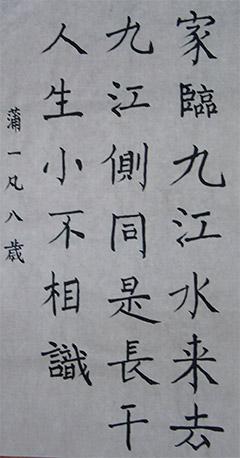 家臨九江水来去
九江側同是長干
人生小不相識
蒲一凡八歳